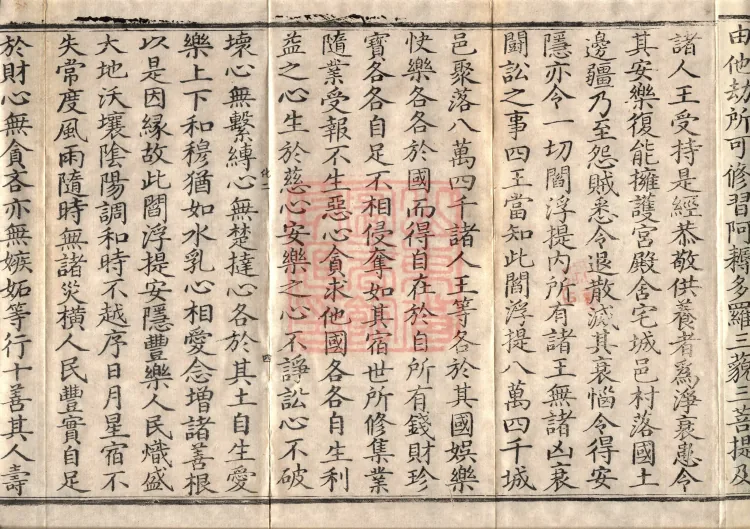 由他劫所可修習阿耨多羅三藐三菩提及
諸人王受持是經恭敬供養者爲淨衰患令
其安樂復能擁護宮殿舍宅城邑村落國土
邊疆乃至怨賊悉令退散滅其衰惱令得安
隱亦令一切閻浮提內所有諸王無諸凶衰
鬪訟之事四王當知此閻浮提八萬四千城
邑聚落八萬四千諸人王等各於其國娛樂
快樂各各於國而得自在於自所有錢財珍
寶各各自足不相侵奪如其宿世所修集業
隨業受報不生惡心貪求他國各各自生利
益之心生於慈心安樂之心不諍訟心不破
壞心無繫縛心無楚撻心各於其土自生愛
化二
四
樂上下和穆猶如水乳心相愛念增諸善根
以是因緣故此閻浮提安隱豐樂人民熾盛
大地沃壤陰陽調和時不越序日月星宿不
失常度風雨隨時無諸災橫人民豐實自足
於財心無貪吝亦無嫉妬等行十善其人壽